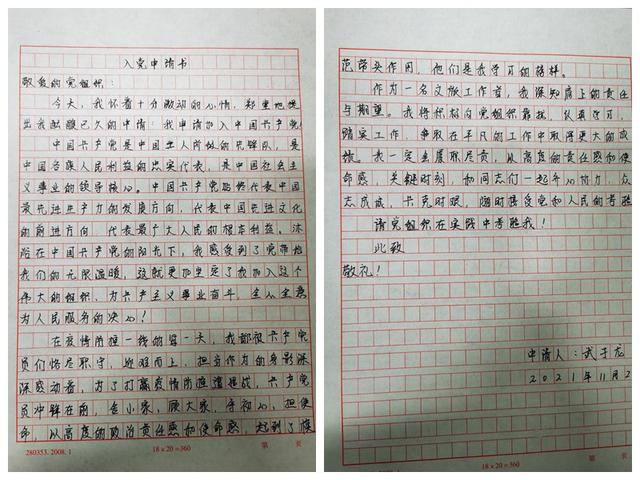 入党申请书
敬爱的党组织:
今天,我怀着十分激动的心情,郑重地提
出我酝酿已久的申请:我申请加入中国共产党
中国共产党是中国工人阶级的先锋队,是
中国各族人民利益的忠实代表,是中国社会主
义事业的领导核心。中国共产党始终代表中国
最先进生产力的发展方向,代表中国先进文化
的前进方向,代表最广大人民的根本利益。沐
浴在中国共产党的阳光下,我感受到了党带给
我们的无限温暖,这就更加坚定了我加入这个
伟大的组织,为共产主义事业奋斗,全心全意
为人民服务的决心!
在疫情防控一线的每一天,我都被共产党
员们恪尽职守,迎难而上,担当作为的身影深
深感动着,为了打赢疫情防控遭遇战,共产党
员冲锋在前,舍小家,顾大家,守初心,担使
命,以高度的政治责任感和使命感,起到了模
280353.2008.1
18×20=360
第 页
范带头作用,他们是我学习的榜样。
作为一名文旅工作者,我深知肩上的责任
与期望。我将积极向党组织靠拢,认真学习,
踏实工作,争取在平凡的工作中取得更大的成
绩。我一定会履职尽责,以高度的责任感和使
命感,关键时刻,和同志们一起齐心协力,众
志成城,共克时艰,随时接受党和人民的考验
请党组织在实践中考验我!
此致
敬礼!
申请人:武于龙
2021年11月2
18×20=360
第 页